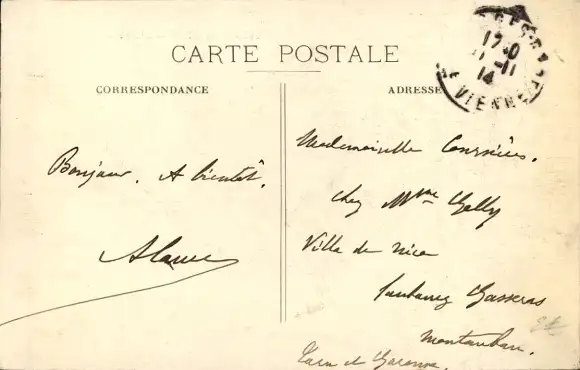 CARTE POSTALE
CORRESPONDANCE
ADRESSE
17-
11-11
14
VIENNE
Bonjour. A bientôt.
Mademoiselle
chez Mme Gelly
Ville de Nice
faubourg Gasseras
Montauban.
Tarn et Garonne.